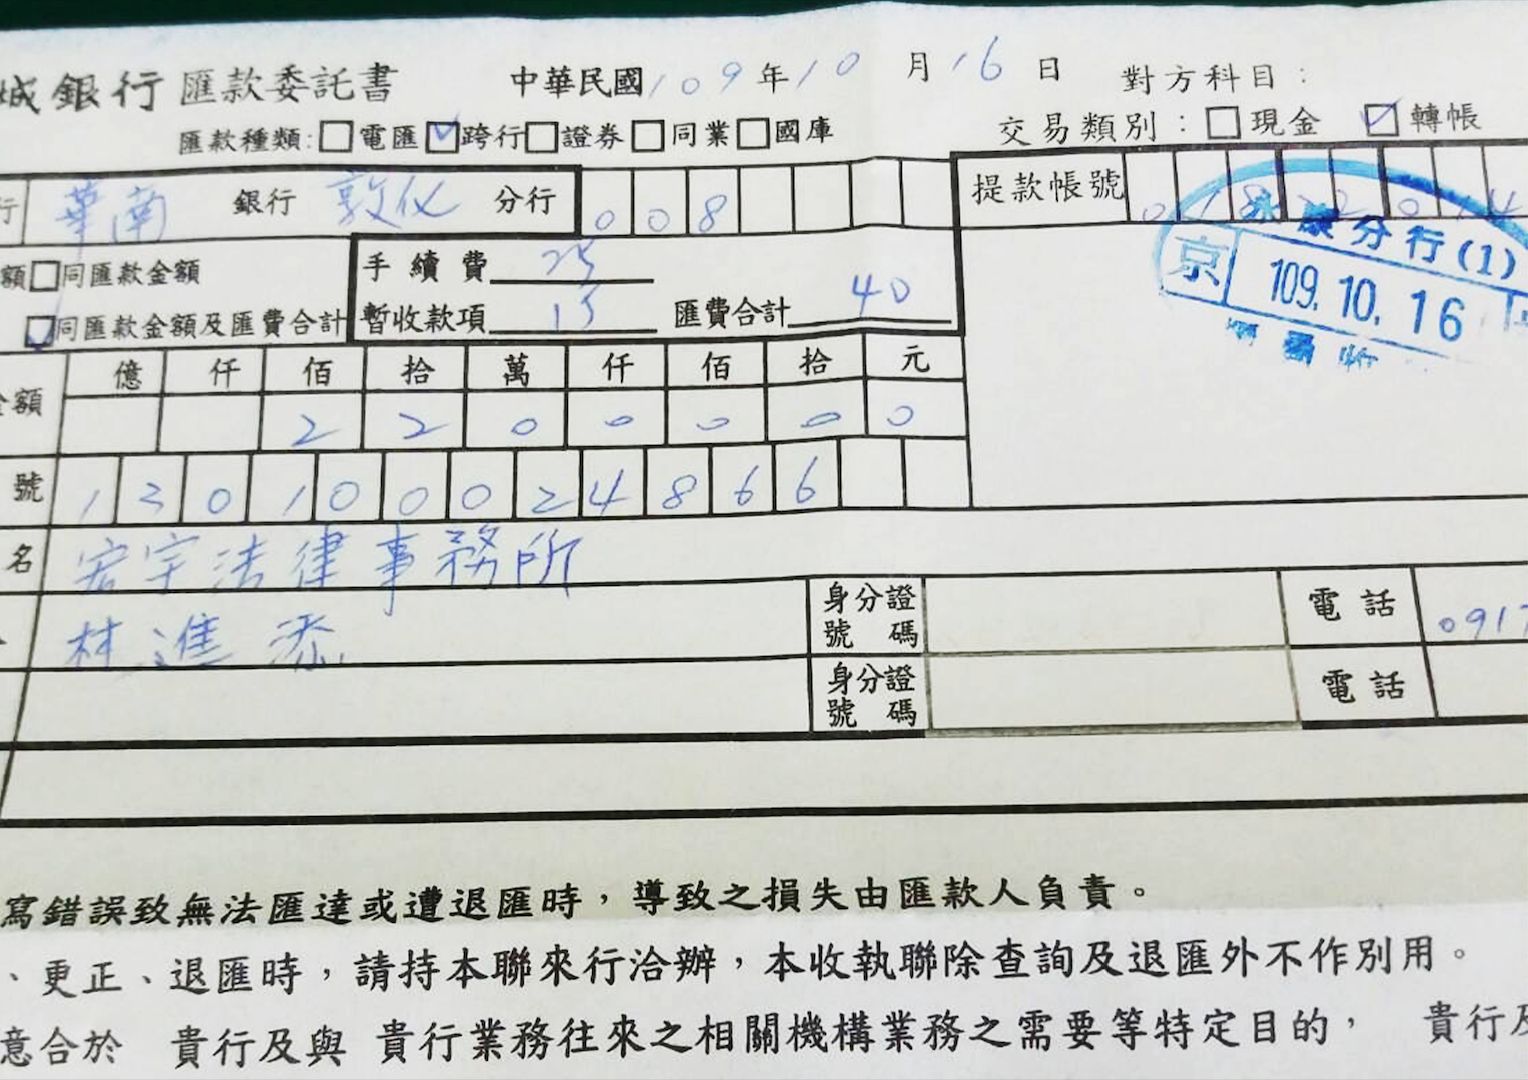 城銀行 匯款委託書 中華民國109年10月16日 對方科目：
匯款種類:□電匯☑跨行□證券□同業□國庫 交易類別：□現金 ☑轉帳
行 華南 銀行 敦化 分行 008 提款帳號
額□同匯款金額 手續費 25
☑同匯款金額及匯費合計 暫收款項 15 匯費合計 40
永康分行(1)
京 109.10.16
億 仟 佰 拾 萬 仟 佰 拾 元
金額 2 2 0 0 0 0 0
號 130100024866
名 宏宇法律事務所
林進添 身分證號碼 電話 0917
身分證號碼 電話
寫錯誤致無法匯達或遭退匯時，導致之損失由匯款人負責。
、更正、退匯時，請持本聯來行洽辦，本收執聯除查詢及退匯外不作別用。
意合於 貴行及與 貴行業務往來之相關機構業務之需要等特定目的， 貴行及